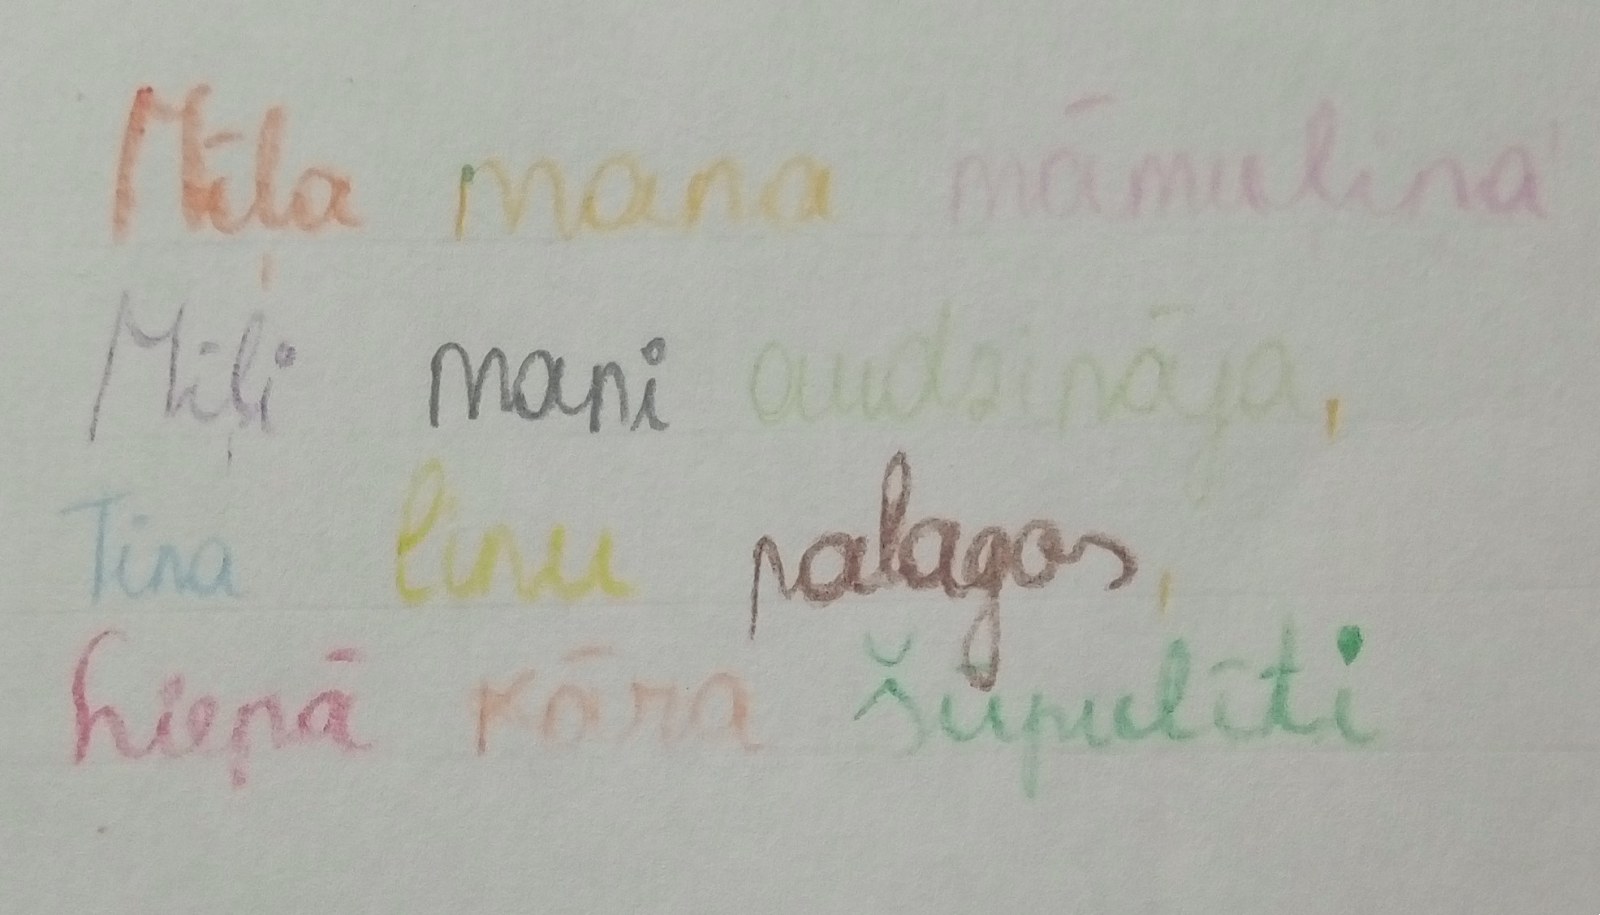 Mīļa mana māmuliņa
Mīļi mani audzināja,
Tina linu palagos,
Liepā kāra šūpulīti